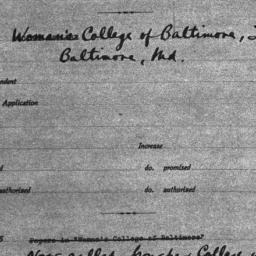 Woman's College of Baltimore,
Baltimore, Md.
dent
Application
Increase
d do. promised
uthorized do. authorized
Papers in "Woman's College of Baltimore"
Now called Goucher College